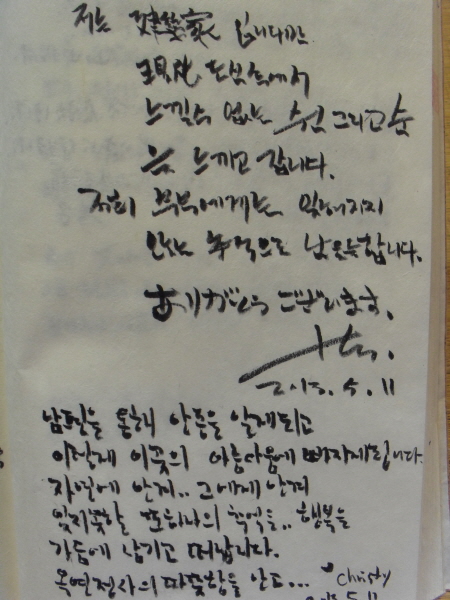 저는 建築家 입니다만
現代 도시속에서
느낄수 없는 선 그리고 숨
을 느끼고 갑니다.
저희 부부에게는 잊혀지지
않는 추억으로 남을듯합니다.
ありがとう ございます.
2013. 5. 11
남편을 통해 안동을 알게되고
이렇게 이곳의 아름다움에 빠지게됩니다.
자연에 안겨.. 그에게 안겨
잊지못할 또하나의 추억을.. 행복을
가슴에 남기고 떠납니다.
옥연정사의 따뜻함을 안고...
Christy
5.11